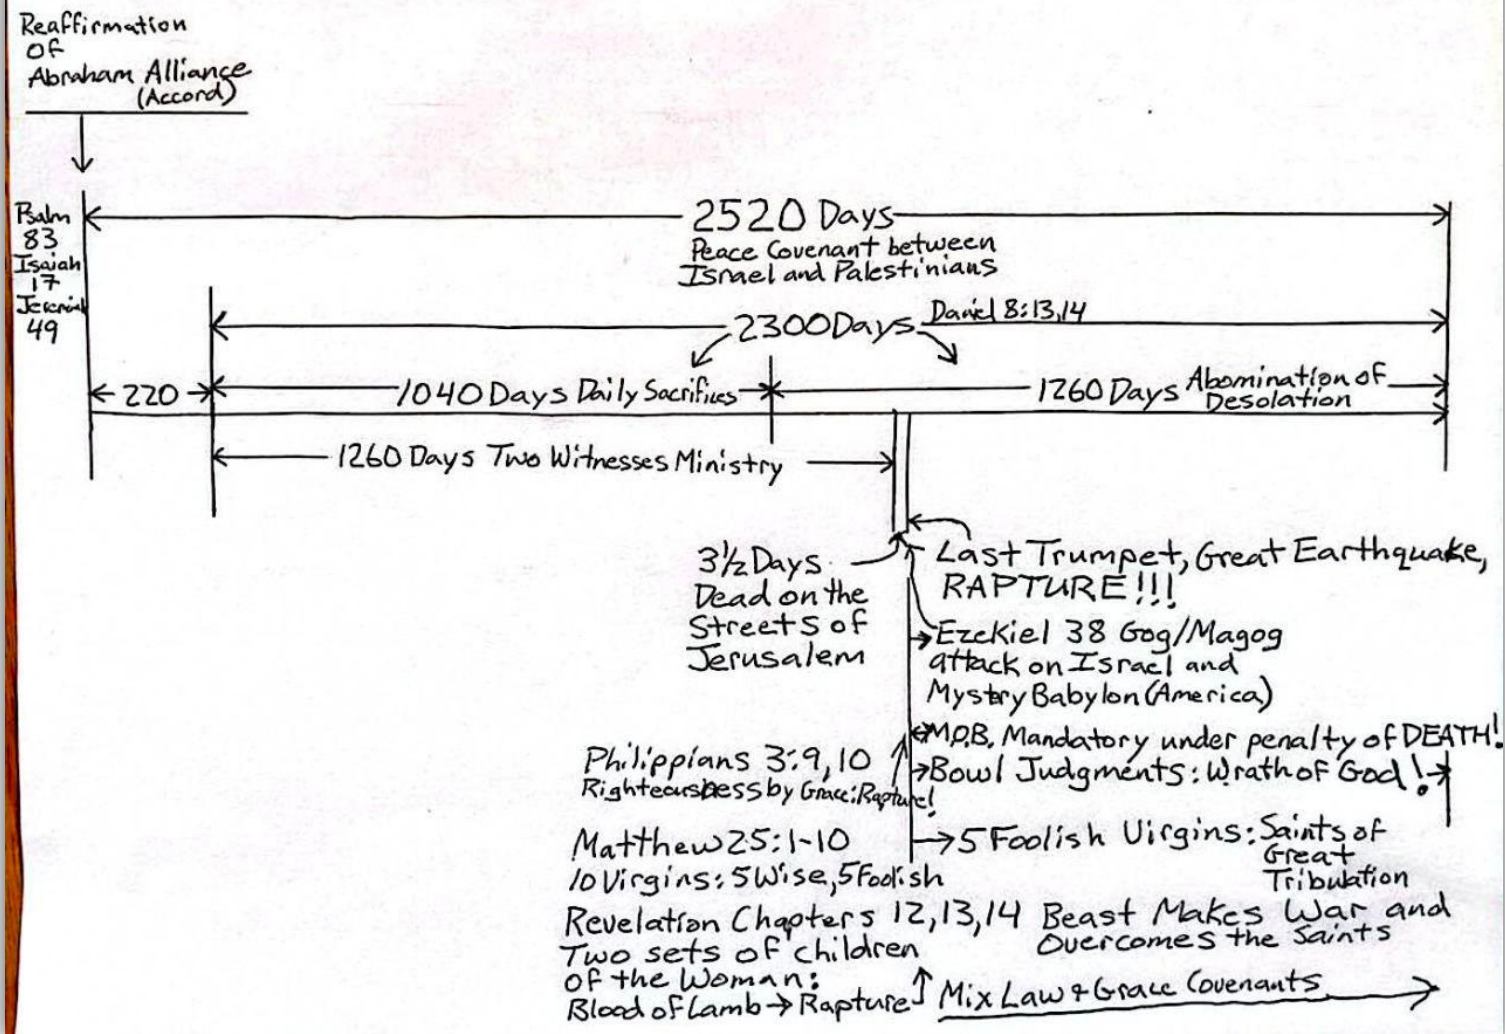 Reaffirmation
Of
Abraham Alliance
(Accord)
Psalm
83
Isaiah
17
Jeremiah
49
2520 Days
Peace Covenant between
Israel and Palestinians
2300 Days Daniel 8:13,14
220
1040 Days Daily Sacrifices
1260 Days Abomination of
Desolation
1260 Days Two Witnesses Ministry
3½ Days
Dead on the
Streets of
Jerusalem
Last Trumpet, Great Earthquake,
RAPTURE!!!
Ezekiel 38 Gog/Magog
attack on Israel and
Mystery Babylon (America)
M.O.B. Mandatory under penalty of DEATH!
Bowl Judgments: Wrath of God!
Philippians 3:9,10
Righteousness by Grace: Rapture!
Matthew 25:1-10
10 Virgins: 5 Wise, 5 Foolish
5 Foolish Virgins: Saints of
Great
Tribulation
Revelation Chapters 12,13,14
Two sets of children
of the Woman:
Blood of Lamb → Rapture
Beast Makes War and
Overcomes the Saints
Mix Law & Grace Covenants